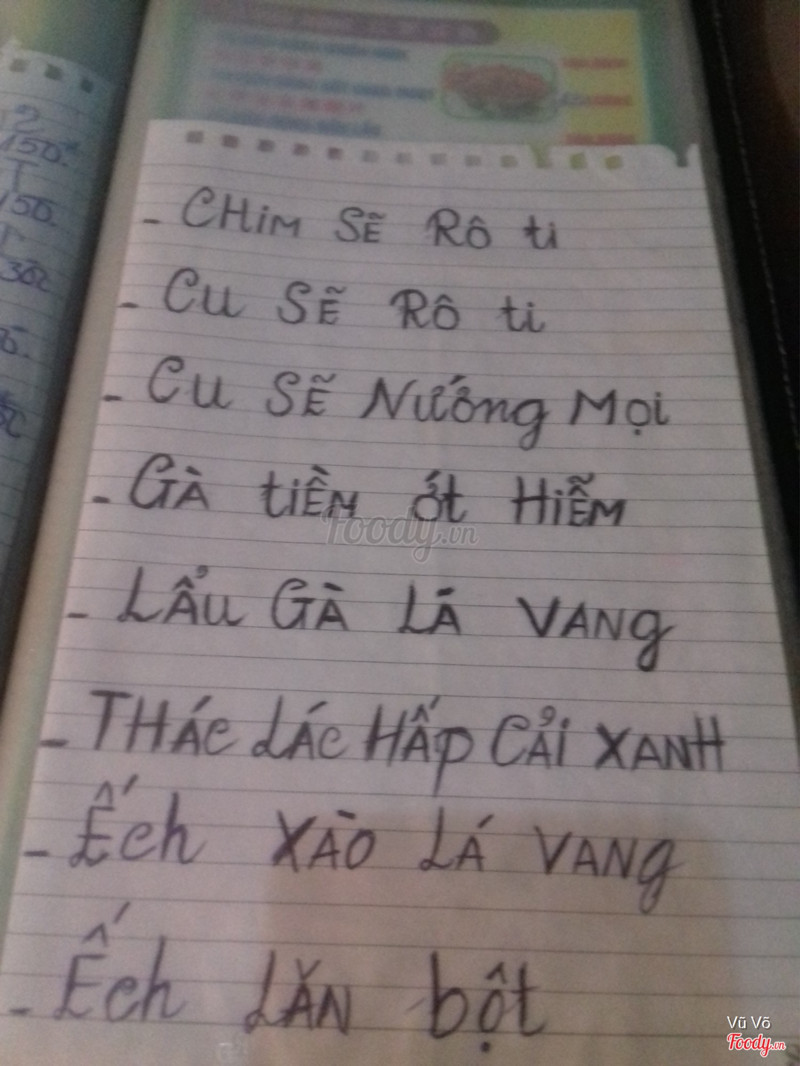 2
150.
150.
- CHIM SẼ RÔ ti
- CU SẼ RÔ ti
- CU SẼ NướNg Mọi
- GÀ tiỀM ớt HiỄM
- LẨU GÀ LÁ VANg
- THÁC LÁC HẤp CẢi XANH
- Ếch XÀO LÁ VANg
- Ếch LĂN bột
Foody.vn
Vũ Võ
Foody.vn